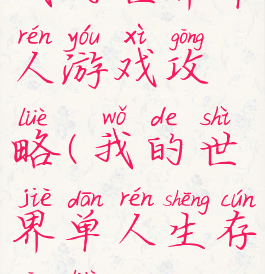 rén yóu xì gōng
人游戏攻
lüè wǒ de shì
略(我的世
jiè dān rén shēng cún
界单人生存